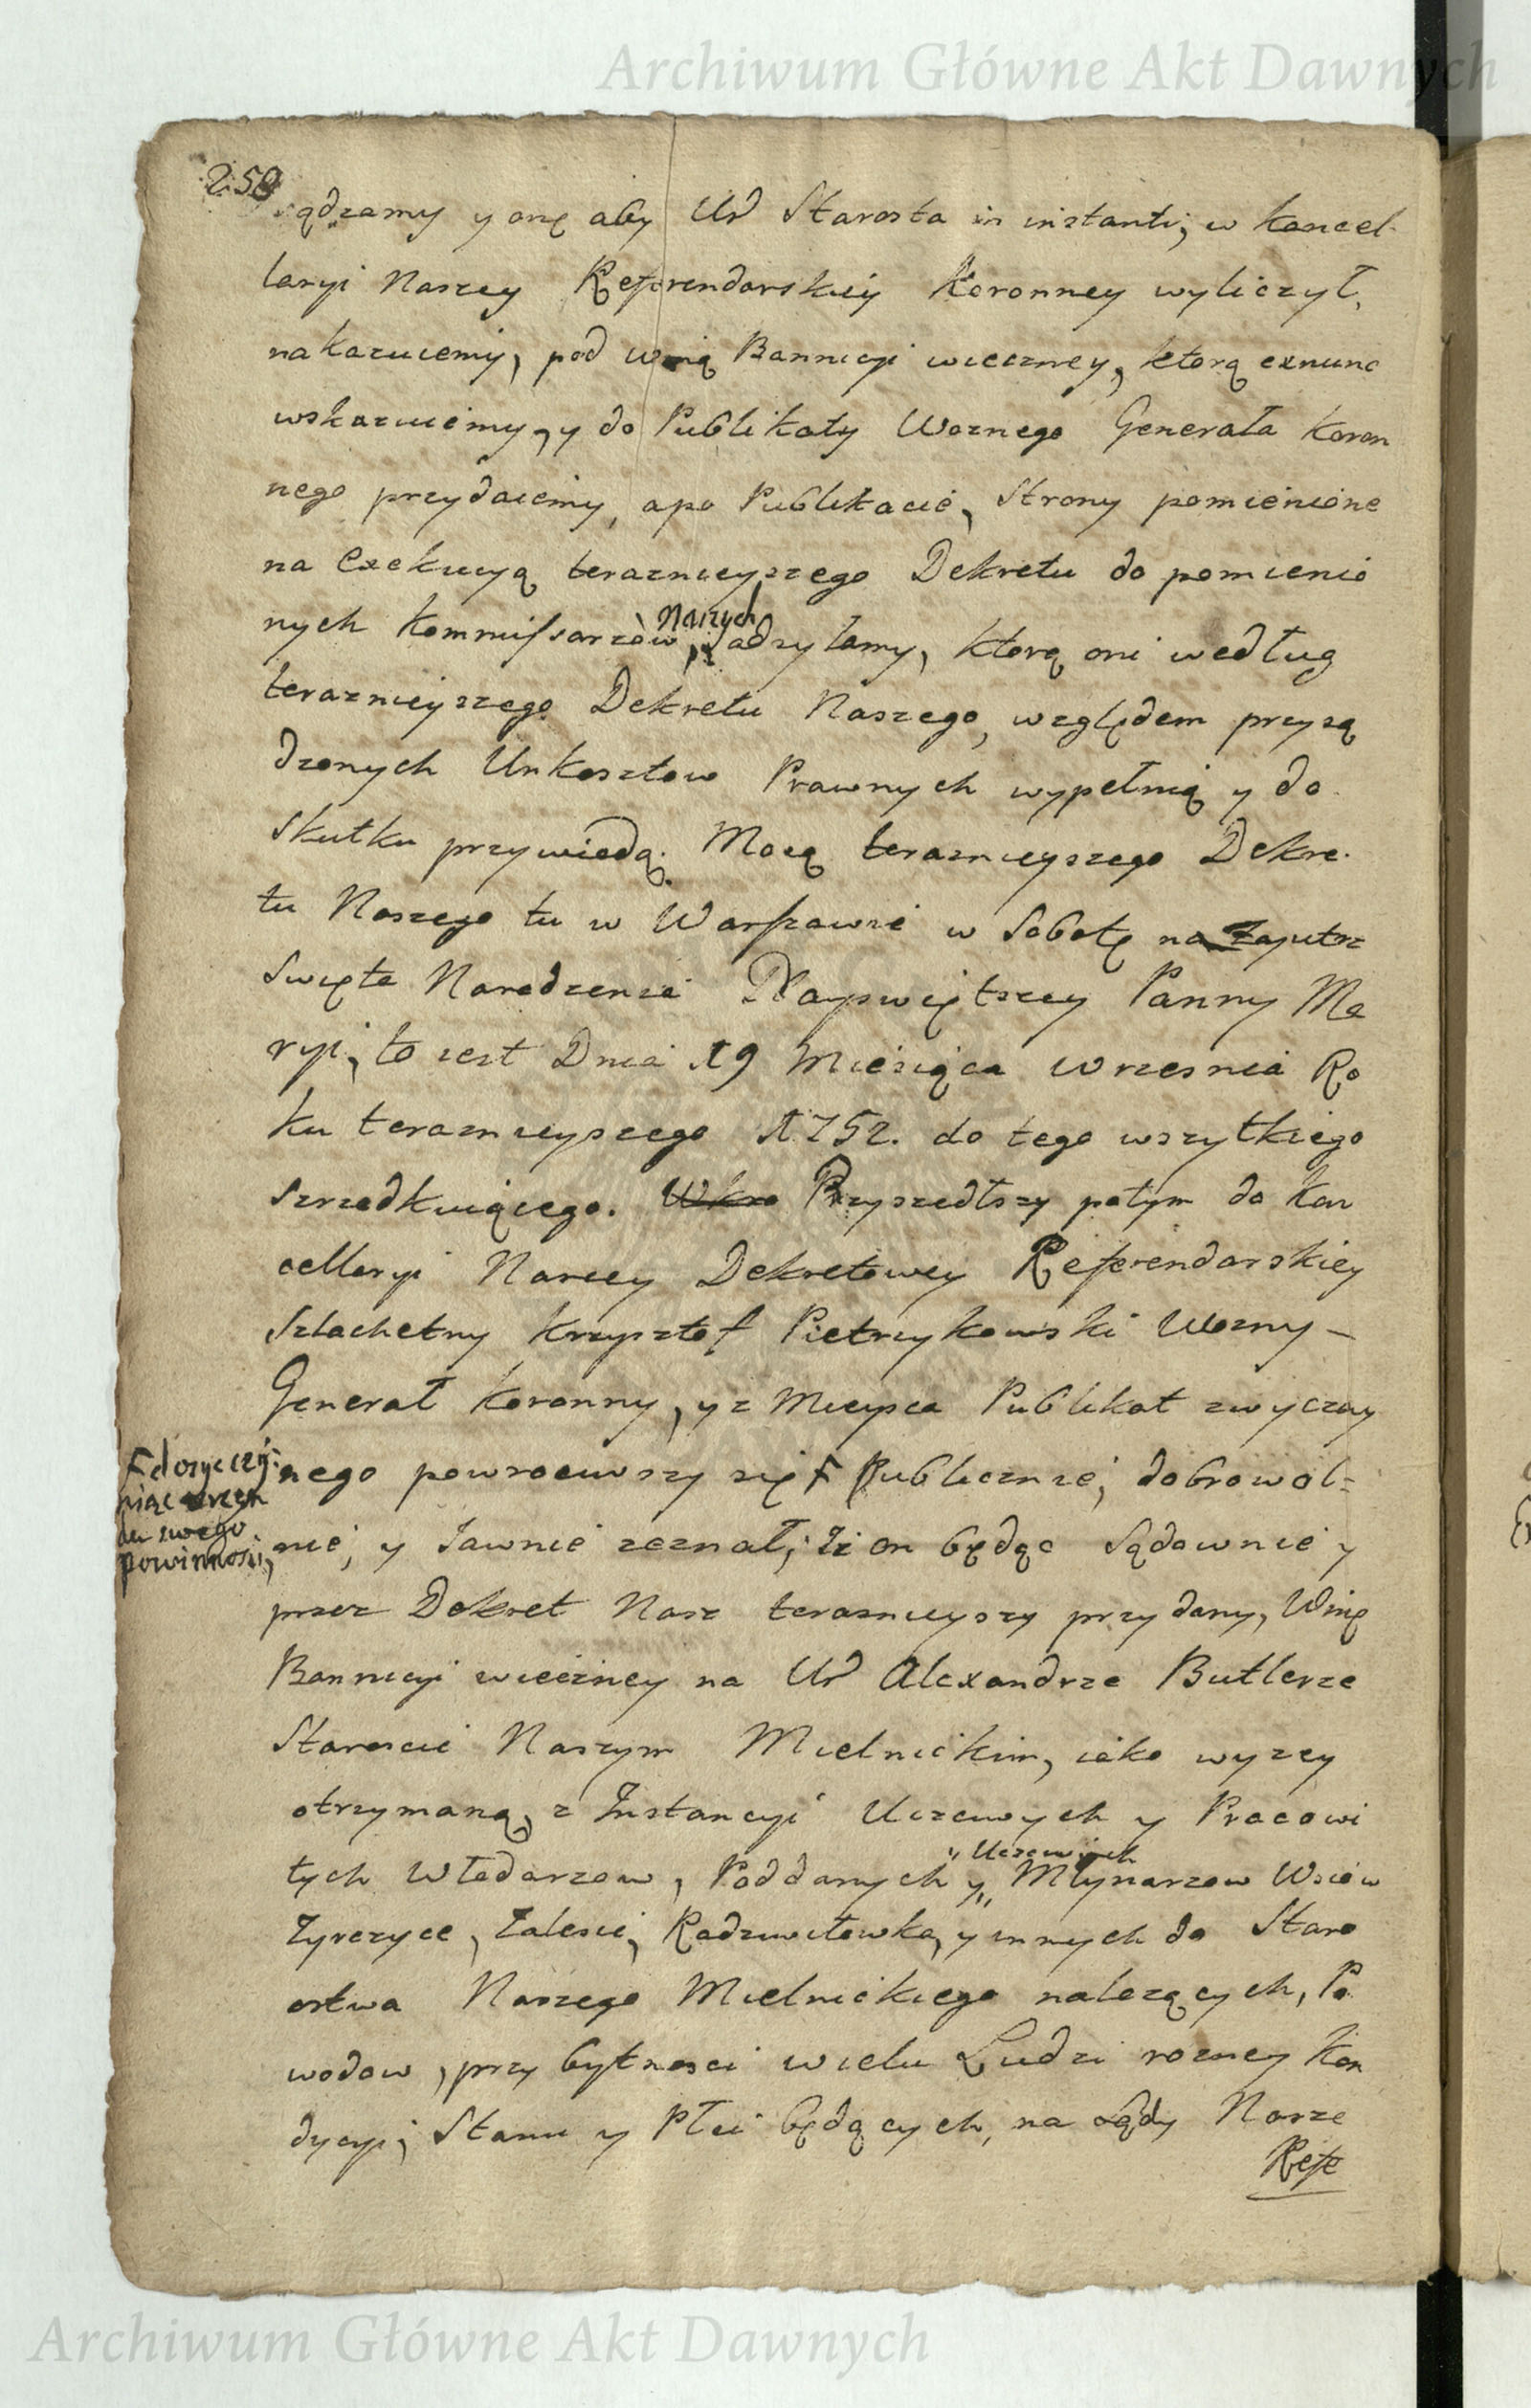 Archiwum Główne Akt Dawnych
258
sądzamy y onę aby Ur Starosta in instanti, w Kancel-
laryi Naszey Referendarskiey Koronney wyliczył,
nakazuiemy, pod winą Bannicyi wieczney, ktorą exnunc
wskazuiemy, y do Publikaty Woznego Generała Koron
nego przydaiemy, a po Publikacie, Strony pomienione
na Exekucyą teraznieyszego Dekretu do pomienio
nych Kommissarzow Naszych odsyłamy, ktorą oni według
teraznieyszego Dekretu Naszego, względem przysą
dzonych Unkosztow Prawnych wypełnią y do
Skutku przywiodą. Mocą teraznieyszego Dekre-
tu Naszego tu w Warszawie w Sobotę nazajutrz
Swięta Narodzenia Nayswiętszey Panny Ma
ryi, to iest Dnia 19 Miesiąca Wrzesnia Ro
ku teraznieyszego 1752. do tego wszytkiego
szrzodkuiącego. Wkro Przyszedłszy potym do Kan
cellaryi Naszey Dekretowey Referendarskiey
Szlachetny Krzysztof Pietrzykowski Wozny –
Generał Koronny, y z Mieysca Publikat zwyczay
nego powrociwszy się F Publicznie, dobrowol=
F dosyc czy-
niąc urzę
du swego
powinnosci,
nie, y Jawnie zeznał, iż on będąc Sądownie y
przez Dekret Nasz teraznieyszy przydany, Winę
Bannicyi wieczney na Ur Alexandrze Butlerze
Staroscie Naszym Mielnickim, iako wyzey
otrzymaną, z Instancyi Uczciwych y Pracowi
tych Włodarzow, Poddanych y „ Uczciwych Młynarzow Wsiow
Zyrczyce, Zalesie, Radziwiłowka, y innych do Staro
ostwa Naszego Mielnickiego nalezących, Po
wodow, przy bytnosci wielu Ludzi rozney Kon
dycyi, Stanu y Płci będących, na Sądy Nasze
Refe
Archiwum Główne Akt Dawnych